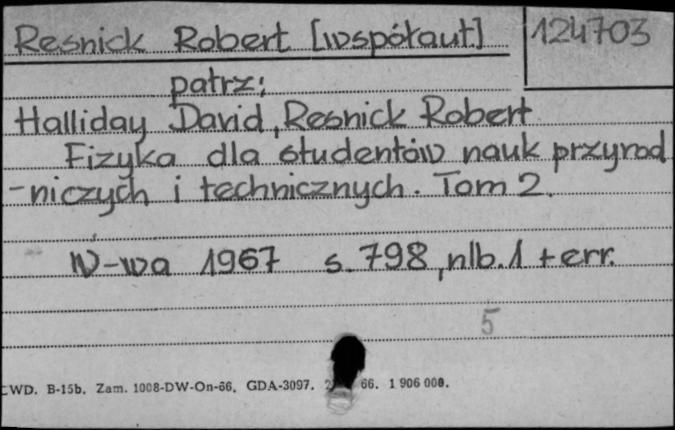 Resnick Robert [współaut.] 124703
patrz:
Halliday David, Resnick Robert
Fizyka dla studentów nauk przyrod
-niczych i technicznych. Tom 2.
W-wa 1967 s. 798, nlb. 1 + err.
5
CWD. B-15b. Zam. 1008-DW-On-66. GDA-3097. 66. 1 906 000.